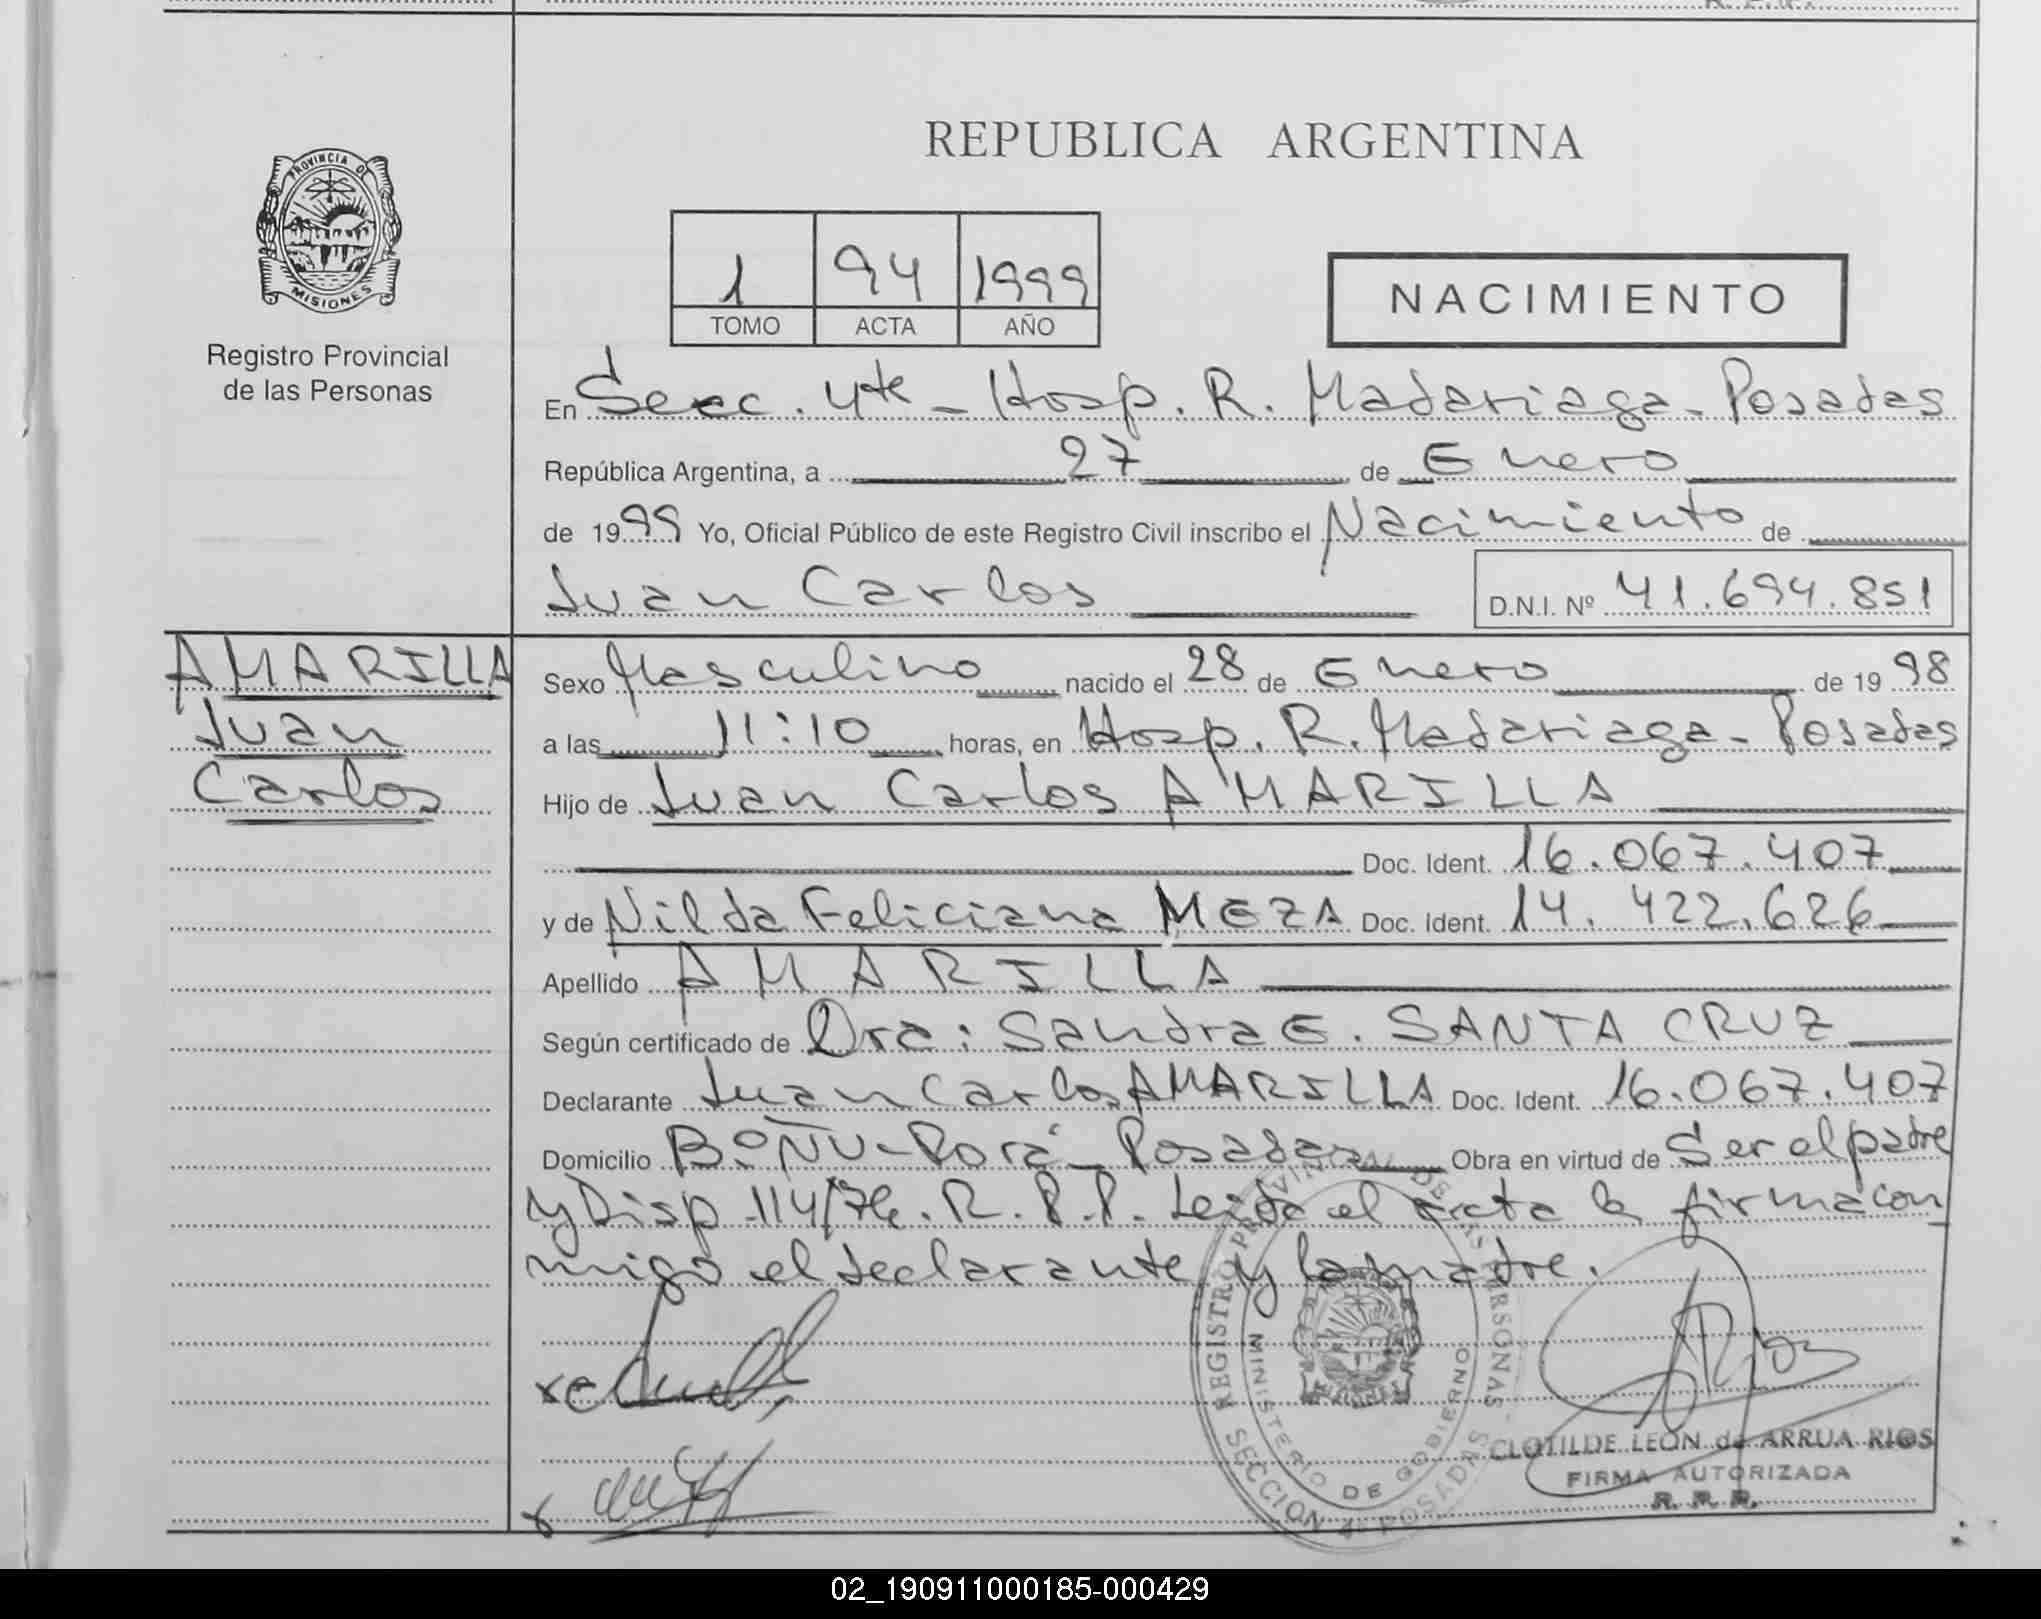 REPUBLICA ARGENTINA
PROVINCIA DE
MISIONES
Registro Provincial
de las Personas
1 94 1999
TOMO ACTA AÑO
NACIMIENTO
En Secc. 4ta - Hosp. R. Madariaga - Posadas
República Argentina, a 27 de Enero
de 1999 Yo, Oficial Público de este Registro Civil inscribo el Nacimiento de
Juan Carlos D.N.I. Nº 41.694.851
AMARILLA
Juan
Carlos
Sexo Masculino nacido el 28 de Enero de 1998
a las 11:10 horas, en Hosp. R. Madariaga - Posadas
Hijo de Juan Carlos AMARILLA
Doc. Ident. 16.067.407
y de Nilda Feliciana MEZA Doc. Ident. 14.422.626
Apellido AMARILLA
Según certificado de Dra: Sandra E. SANTA CRUZ
Declarante Juan Carlos AMARILLA Doc. Ident. 16.067.407
Domicilio Bº ÑU-Porá - Posadas Obra en virtud de Ser el padre
y Disp. 114/76. R.P.P. Leida el acta la firma con
migo el declarante y la madre.
REGISTRO PROVINCIAL DE LAS PERSONAS
MINISTERIO DE GOBIERNO
SECCION 4ª POSADAS
CLOTILDE LEON de ARRUA RIOS
FIRMA AUTORIZADA
R. P. P.
02_190911000185-000429